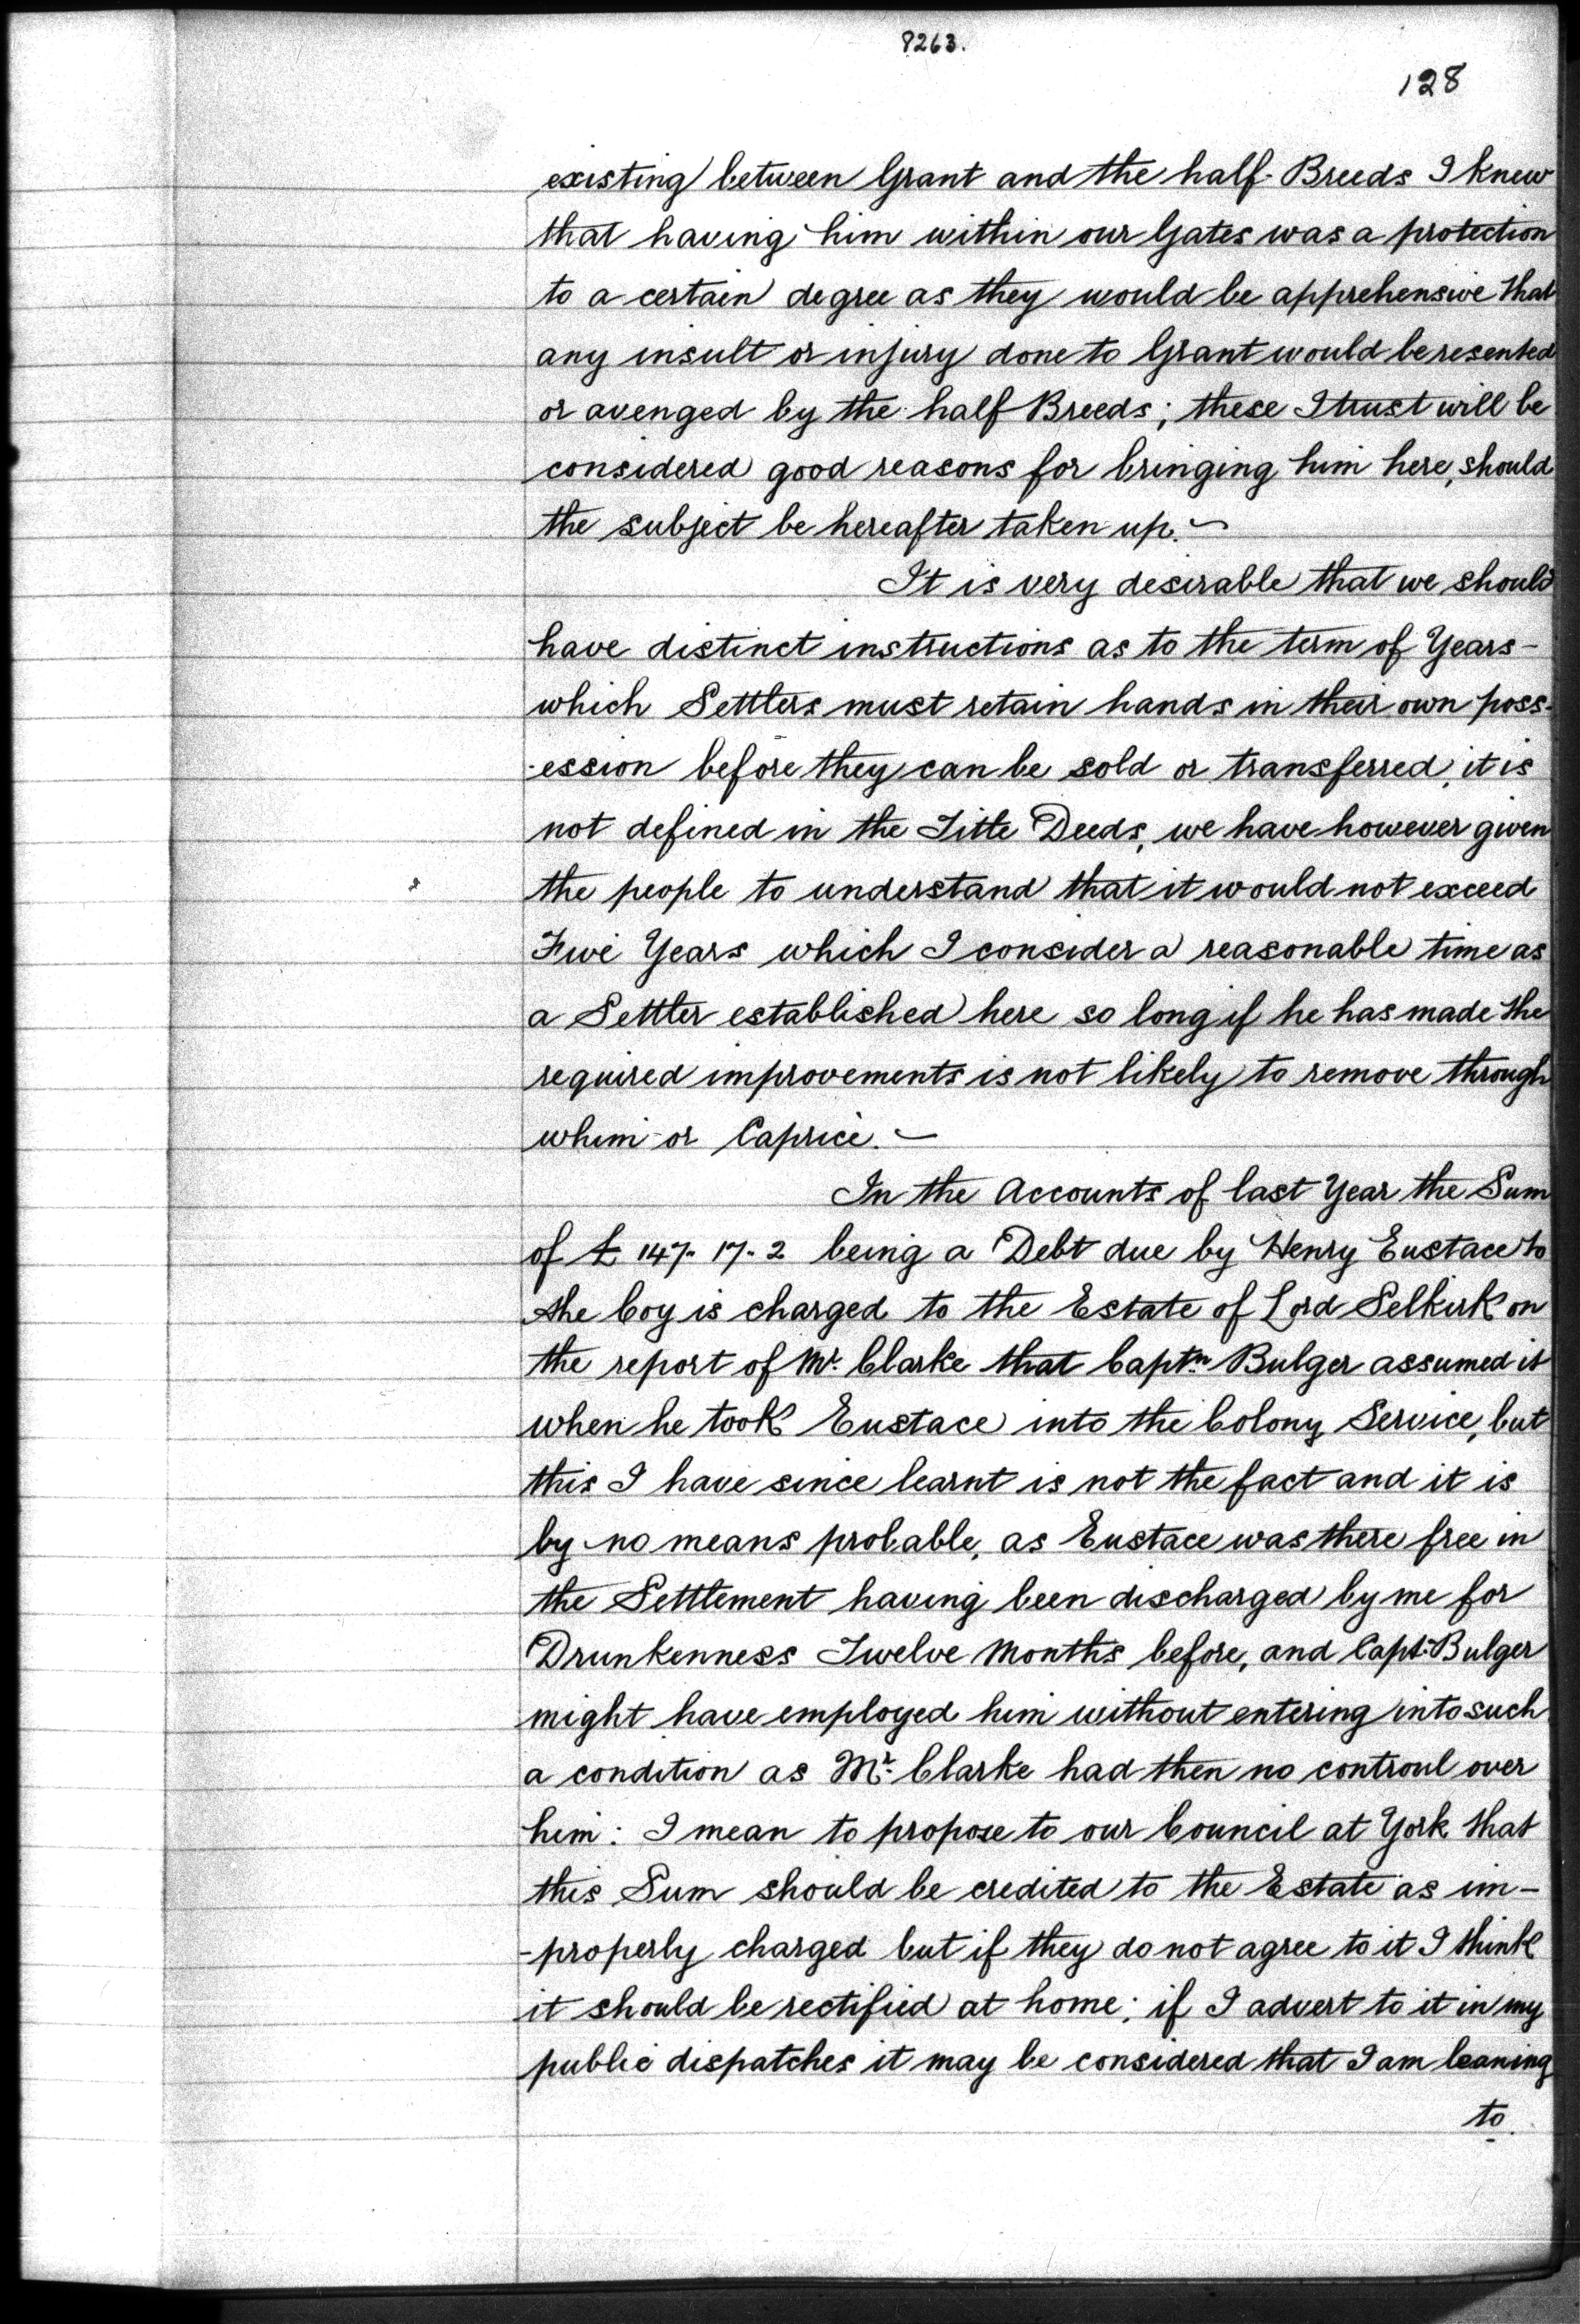 8263.
128
existing between Grant and the half-Breeds I knew
that having him within our Gates was a protection
to a certain degree as they would be apprehensive that
any insult or injury done to Grant would be resented
or avenged by the half Breeds; these I trust will be
considered good reasons for bringing him here, should
the subject be hereafter taken up. ~
It is very desirable that we should
have distinct instructions as to the term of Years -
which Settlers must retain hands in their own poss-
-ession before they can be sold or transferred, it is
not defined in the Title Deeds, we have however given
the people to understand that it would not exceed
Five Years which I consider a reasonable time as
a Settler established here so long if he has made the
required improvements is not likely to remove through
whim or Caprice. ~
In the Accounts of last Year the Sum
of £ 147. 17. 2 being a Debt due by Henry Eustace to
the Coy is charged to the Estate of Lord Selkirk on
the report of Mr. Clarke that Captn. Bulger assumed it
when he took Eustace into the Colony Service, but
this I have since learnt is not the fact and it is
by no means probable, as Eustace was there free in
the Settlement having been discharged by me for
Drunkenness Twelve Months before, and Capt. Bulger
might have employed him without entering into such
a condition as Mr. Clarke had then no controul over
him: I mean to propose to our Council at York that
this Sum should be credited to the Estate as im-
-properly charged but if they do not agree to it I think
it should be rectified at home; if I advert to it in my
public dispatches it may be considered that I am leaning
to